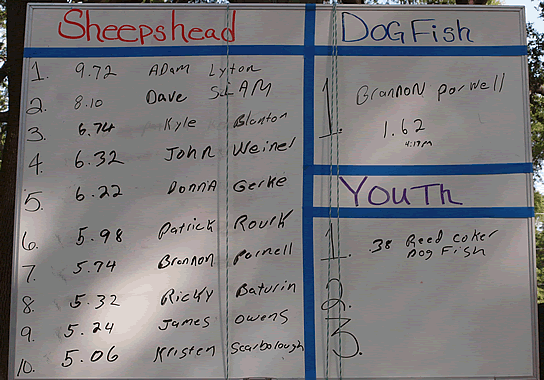 Sheepshead
1. 9.72 ADam Lyton
2. 8.10 Dave SLAM
3. 6.74 Kyle Blanton
4. 6.32 John Weinel
5. 6.22 DONNA Gerke
6. 5.98 Patrick Rourk
7. 5.74 Brannon Parnell
8. 5.32 Ricky Baturin
9. 5.24 James Owens
10. 5.06 Kristen Scarborough
DOGFish
1. Brannon Parnell
1.62
4:17PM
YOUTh
1. .38 Reed Coker
Dog Fish
2
3.